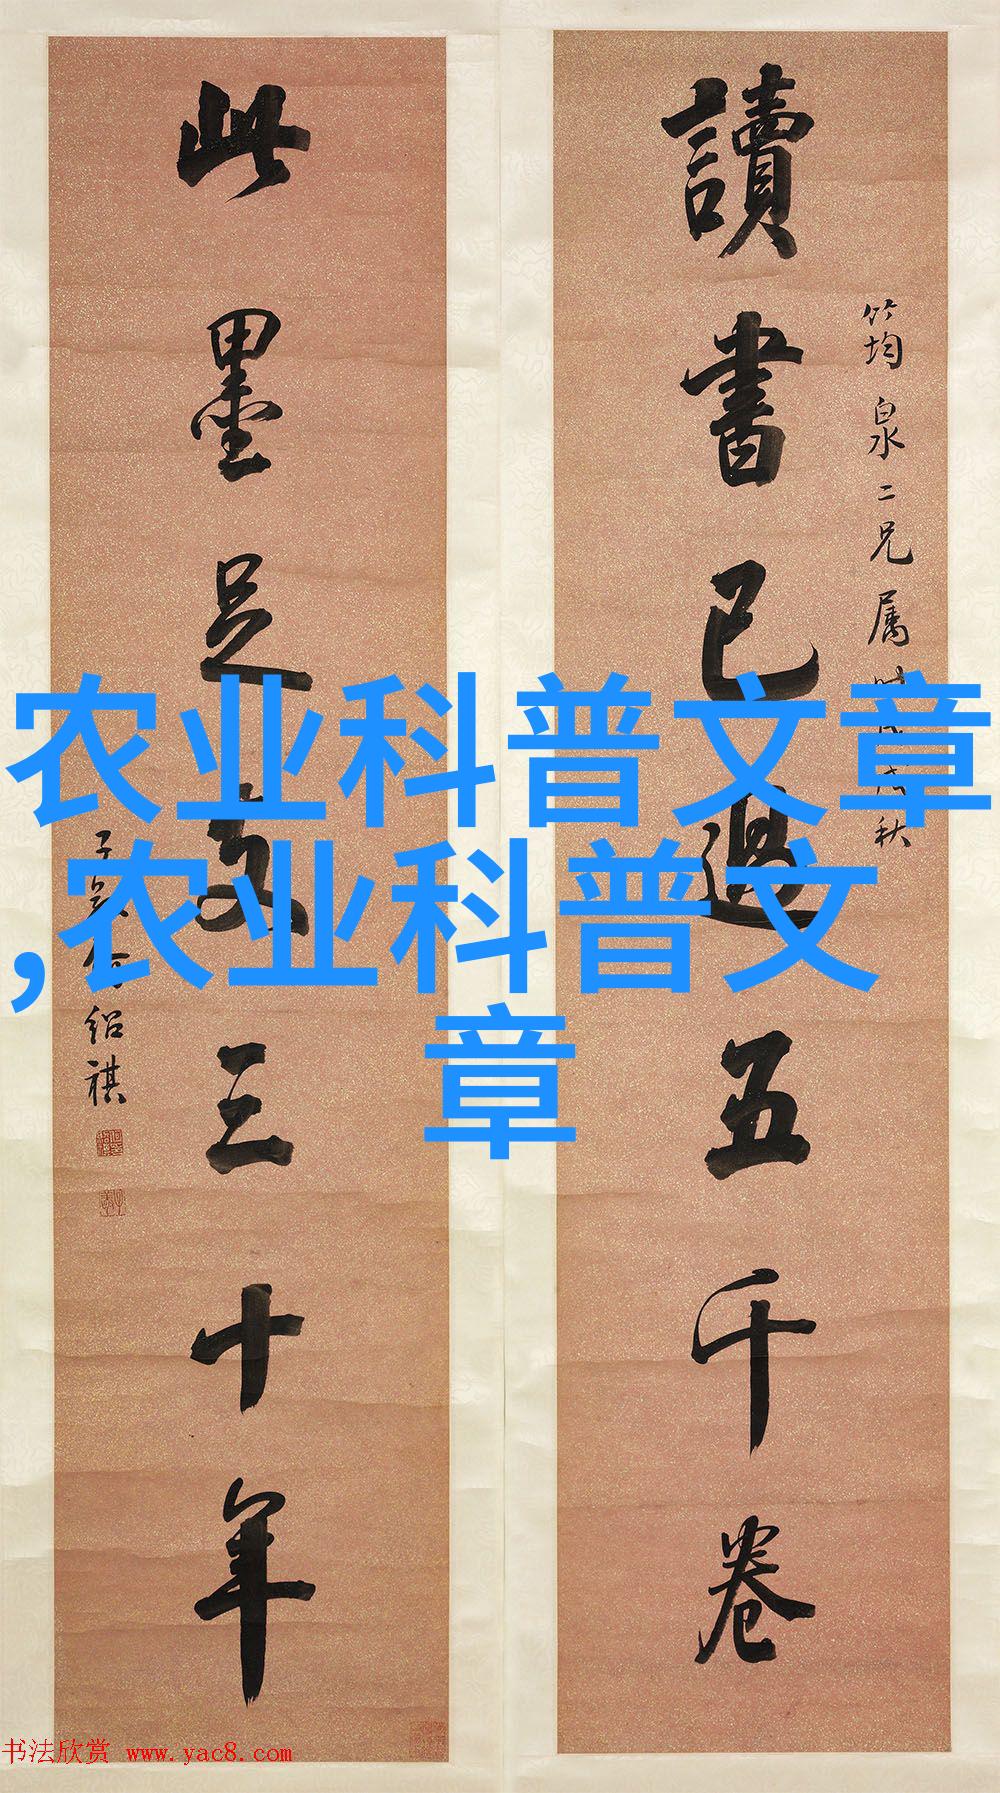 讀書已過五千卷
竹均泉二兄属
秋
此墨足支三十年
子
绍祺
农业科普文章
,农业科普文
章
书法欣赏 www.yac8.com